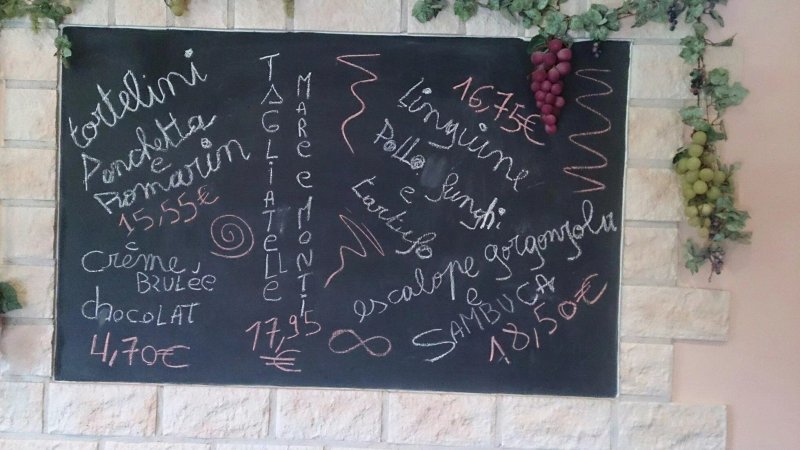 tortelini
Panchetta
e
Romarin
15,55€
crème
BRULÉE
chocolat
4,70€
TAGLIATELLE
MARE E MONTI
17,95
€
16,75€
Lingüine
Pollo funghi
e
tartufo
escalope gorgonzola
e
SAMBUCA
18,50€